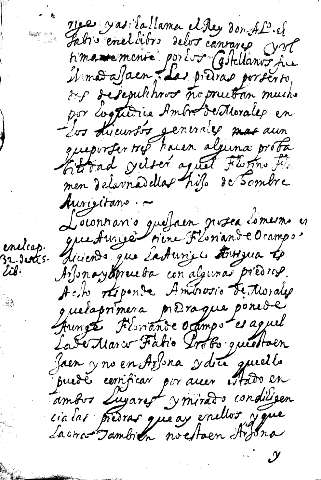 nes y asi la llama el Rey don Alº. el
sabio en el libro de los cantares y vl
timamente por los Castellanos fue
llamada Jaen. Las piedras por ser to
das de sepulchros no prueban mucho
por lo que dicia Ambrº de Morales en
los discursos generales mas aun
que por ser tres hacen alguna proba
bilidad y el ser aquel Florino
men de la una dellas hijo de
Aurigitano. ~
Lo contrario que Jaen no sea lo mesmo
que Auringe tiene Florian de Ocampo
en el cap.
32. de su 5.
lib.
diciendo que la Auringe antigua es
Arjona y prueba con algunas piedras.
A esto responde Ambrosio de Morales
que la primera piedra que pone de
Auringe Florian de Ocampo es aquel
la de Marco Fabio Probo que esta en
Jaen y no en Arjona y dice que el lo
puede certificar por aver estado en
ambos lugares y mirado con diligen
cia las piedras que ay en ellos y que
la otra tambien no esta en Arjona
y